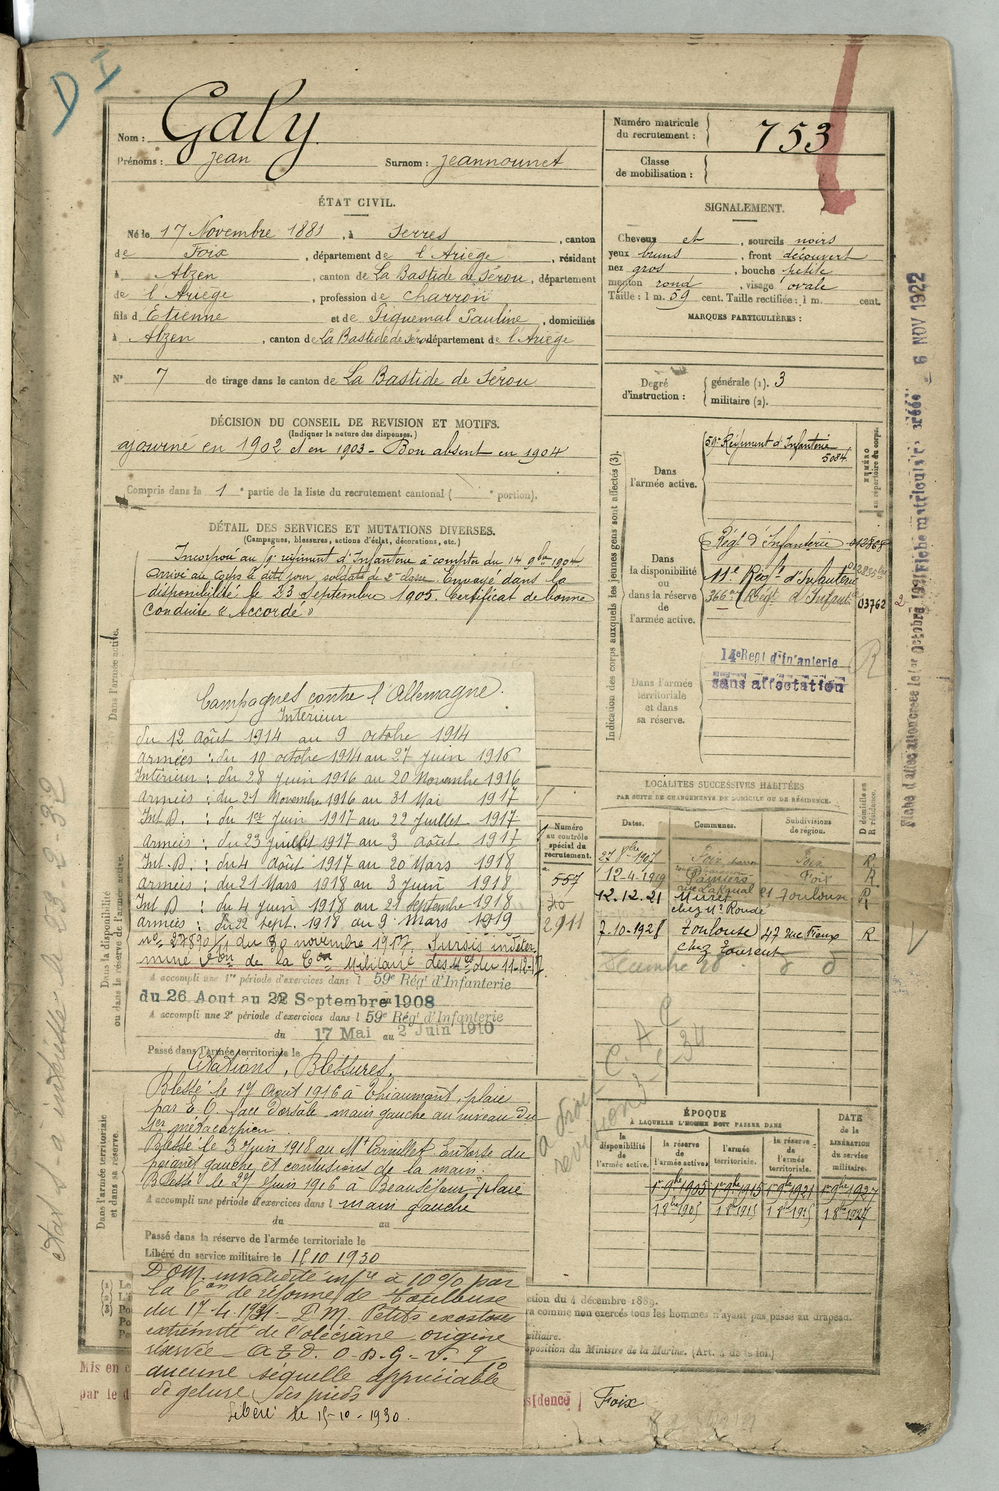 D I
Nom : Galy
Prénoms : Jean Surnom : Jeannounet
Numéro matricule
du recrutement : 753
Classe
de mobilisation :
ÉTAT CIVIL.
Né le 17 Novembre 1881, à Serres, canton
de Foix, département de l'Ariège, résidant
à Alzen, canton de La Bastide de Sérou, département
de l'Ariège, profession de charron
fils d'Etienne et de Piquemal Pauline, domiciliés
à Alzen, canton de La Bastide de Sérou département de l'Ariège
N° 7 de tirage dans le canton de La Bastide de Sérou
SIGNALEMENT.
Cheveux et, sourcils noirs
yeux bruns, front découvert
nez gros, bouche petite
menton rond, visage ovale
Taille : 1 m. 59 cent. Taille rectifiée : 1 m. cent.
MARQUES PARTICULIÈRES :
Degré
d'instruction :
générale (1). 3
militaire (2).
DÉCISION DU CONSEIL DE REVISION ET MOTIFS.
(Indiquer la nature des dispenses.)
ajourné en 1902 et en 1903 - Bon absent en 1904
Compris dans la 1e partie de la liste du recrutement cantonal ( e portion).
DÉTAIL DES SERVICES ET MUTATIONS DIVERSES.
(Campagnes, blessures, actions d'éclat, décorations, etc.)
Incorporé au régiment d'Infanterie à compter du 14 9bre 1904
arrivé au corps le dit jour, soldat de 2e classe. Envoyé dans la
disponibilité le 23 Septembre 1905. Certificat de bonne
conduite "Accordé"
Dans l'armée active.
Campagnes contre l'Allemagne.
Intérieur
du 12 août 1914 au 9 octobre 1914
armées : du 10 octobre 1914 au 27 juin 1916
Intérieur : du 28 juin 1916 au 20 Novembre 1916
armées : du 21 Novembre 1916 au 31 Mai 1917
Int. D. : du 1er juin 1917 au 22 juillet 1917
armées : du 23 juillet 1917 au 3 août 1917
Int. D : du 4 août 1917 au 20 Mars 1918
armées : du 21 Mars 1918 au 3 juin 1918
Int D : du 4 juin 1918 au 21 septembre 1918
armées : du 22 sept. 1918 au 9 Mars 1919
du 30 novembre 1917 Sursis indéter
miné de la Con Militaire des Mes du 11-12-17
Dans la disponibilité
ou dans la réserve de l'armée active.
A accompli une 1re période d'exercices dans l 59e Régt d'Infanterie
du 26 Aout au 22 Septembre 1908
A accompli une 2e période d'exercices dans l 59e Régt d'Infanterie
du 17 Mai au 2 Juin 1910
Passé dans l'armée territoriale le
Citations, Blessures.
Blessé le 17 Aout 1916 à Thiaumont, plaie
par E. O. face dorsale main gauche au niveau du
1er métacarpien
Blessé le 3 juin 1918 au Mt Cornillet Entorse du
poignet gauche et contusions de la main.
Blessé le 27 Juin 1916 à Beauséjour, plaie
A accompli une période d'exercices dans l main gauche
du au
Dans l'armée territoriale
et dans sa réserve.
Passé dans la réserve de l'armée territoriale le
Libéré du service militaire le 15 10 1930
invalidité infre à 10% par
la Con de réforme de Toulouse
du 17-4-1931 - P.M. Petite exostose
extrémité de l'olécrane, origine
réservée
aucune séquelle appréciable
de gelure des pieds
Libéré le 15-10-1930.
Mis en c
par le d
Indication des corps auxquels les jeunes gens sont affectés (3).
Dans
l'armée active.
50e Régiment d'Infanterie
5084
NUMÉRO
au répertoire du corps.
Dans
la disponibilité
ou
dans la réserve
de
l'armée active.
Régt d'Infanterie
11e Régt d'Infanterie
366me Régt d'Infant
03762
Dans l'armée
territoriale
et dans
sa réserve.
14e Regt d'infanterie
sans affectation
R
LOCALITÉS SUCCESSIVES HABITÉES
PAR SUITE DE CHANGEMENTS DE DOMICILE OU DE RÉSIDENCE.
Dates. Communes. Subdivisions
de région.
D domicile ou
R résidence.
1907 Foix Foix R
12.4.1919 Pamiers Foix R
12.12.21 Muret Toulouse R
chez Me Roude
7-10-1928 Toulouse 47 rue R
chez
Numéro
au contrôle
spécial du
recrutement.
557
2911
ÉPOQUE
À LAQUELLE L'HOMME DOIT PASSER DANS
la
disponibilité
de
l'armée active.
la réserve
de
l'armée active.
l'armée
territoriale.
la réserve
de
l'armée
territoriale.
DATE
de la
LIBÉRATION
du
service
militaire.
1er 9bre 1905 1er 9bre 1915 1er 9bre 1921 1er 9bre 1927
ction du 4 décembre 1889.
ra comme non exercés tous les hommes n'ayant pas passé au drapeau.
xiliaire.
sposition du Ministre de la Marine. (Art. 4 de la loi.)
sidence Foix
6 NOV 1922